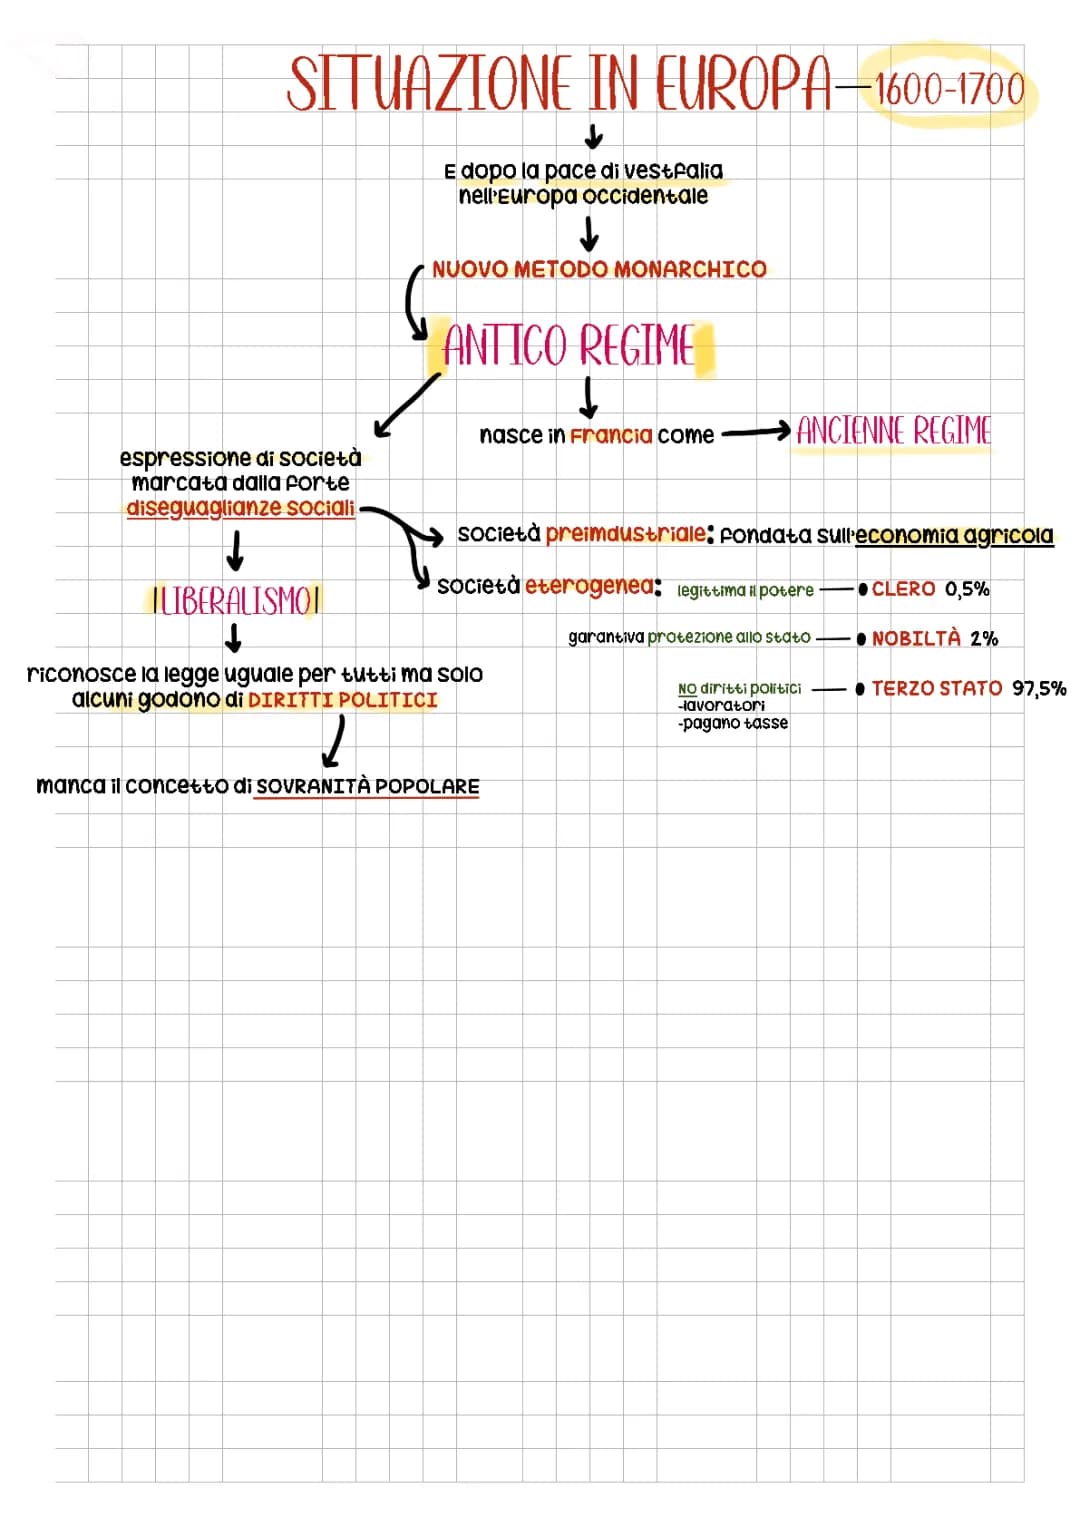 SITUAZIONE IN EUROPA—1600-1700
E dopo la pace di vestfalia
nell'Europa occidentale
NUOVO METODO MONARCHICO
ANTICO REGIME
nasce in Francia come
ANCIENNE REGIME
espressione di società
marcata dalla forte
diseguaglianze sociali
società preimdustriale: fondata sull'economia agricola
società eterogenea: legittima il potere — • CLERO 0,5%
garantiva protezione allo stato — • NOBILTÀ 2%
NO diritti politici — • TERZO STATO 97,5%
-lavoratori
-pagano tasse
|LIBERALISMO|
riconosce la legge uguale per tutti ma solo
alcuni godono di DIRITTI POLITICI
manca il concetto di SOVRANITÀ POPOLARE